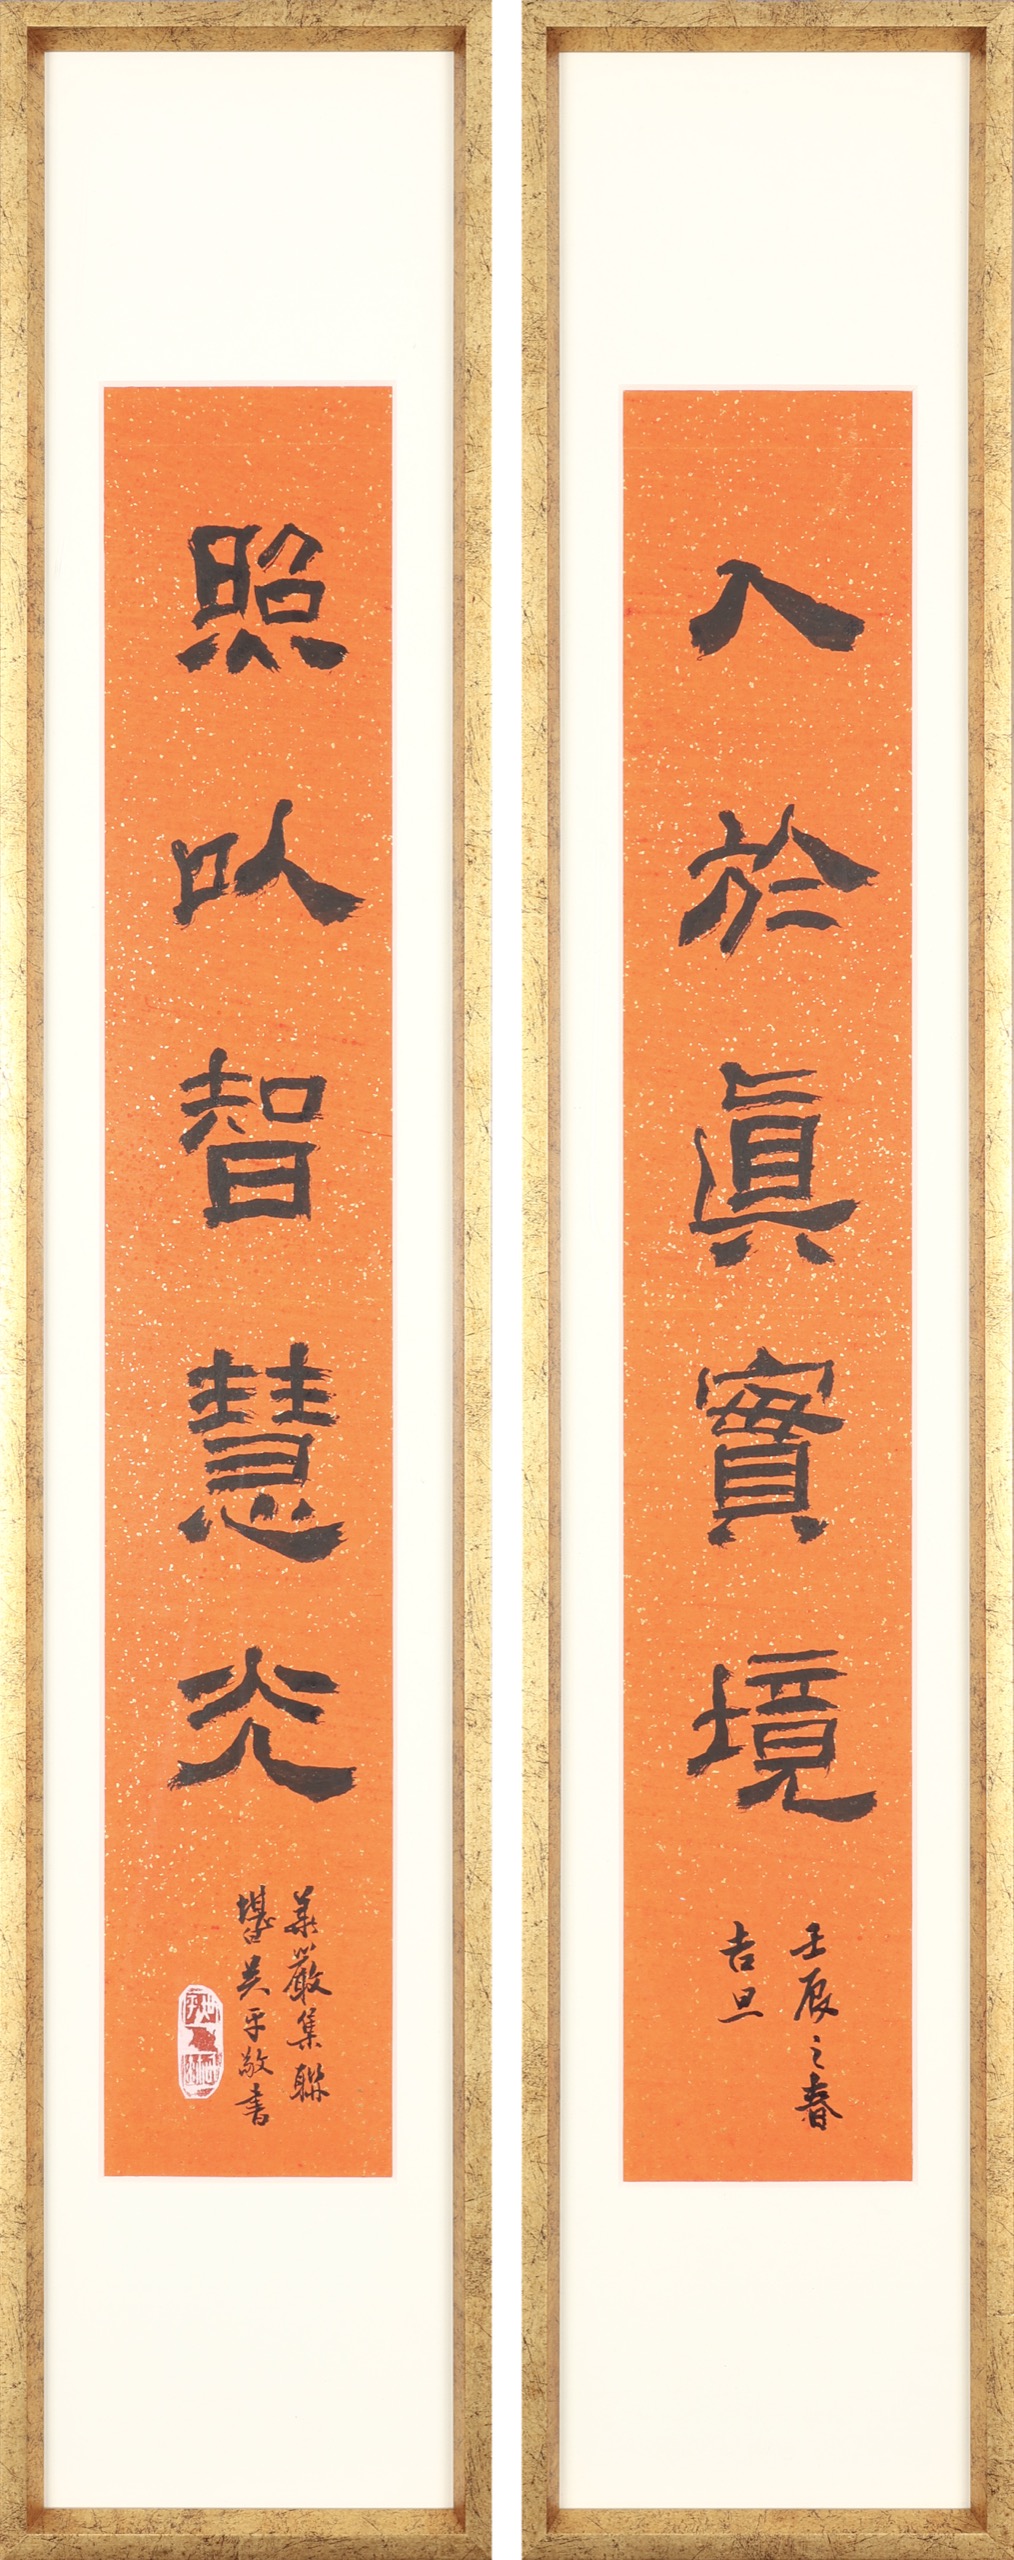 入於真實境
壬辰之春
吉旦
照以智慧光
華嚴集聯
堪白吳平敬書